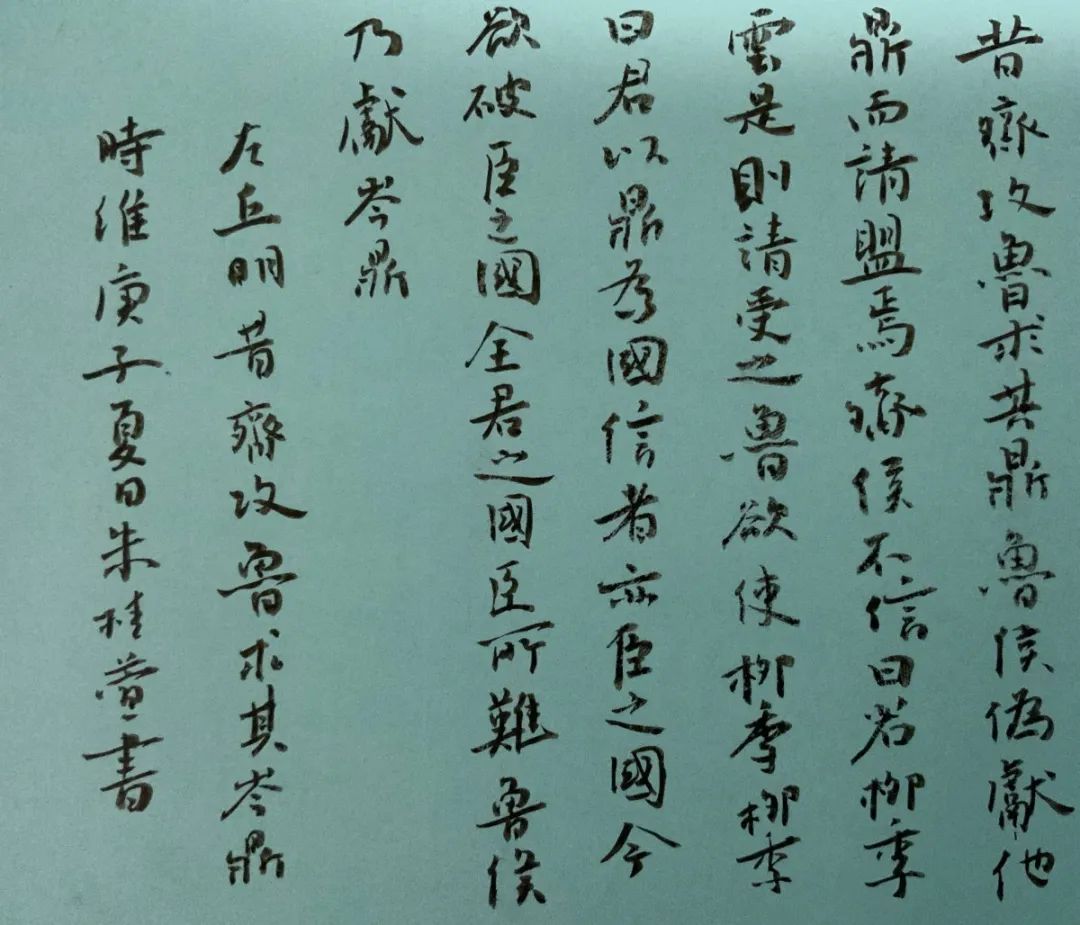 昔齊攻魯求其鼎魯侯偽獻他
鼎而請盟焉齊侯不信曰若柳季
雲是則請受之魯欲使柳季柳季
曰君以鼎為國信者亦臣之國今
欲破臣之國全君之國臣所難魯侯
乃獻岑鼎
左丘明昔齊攻魯求其岑鼎
時維庚子夏日朱桂萱書